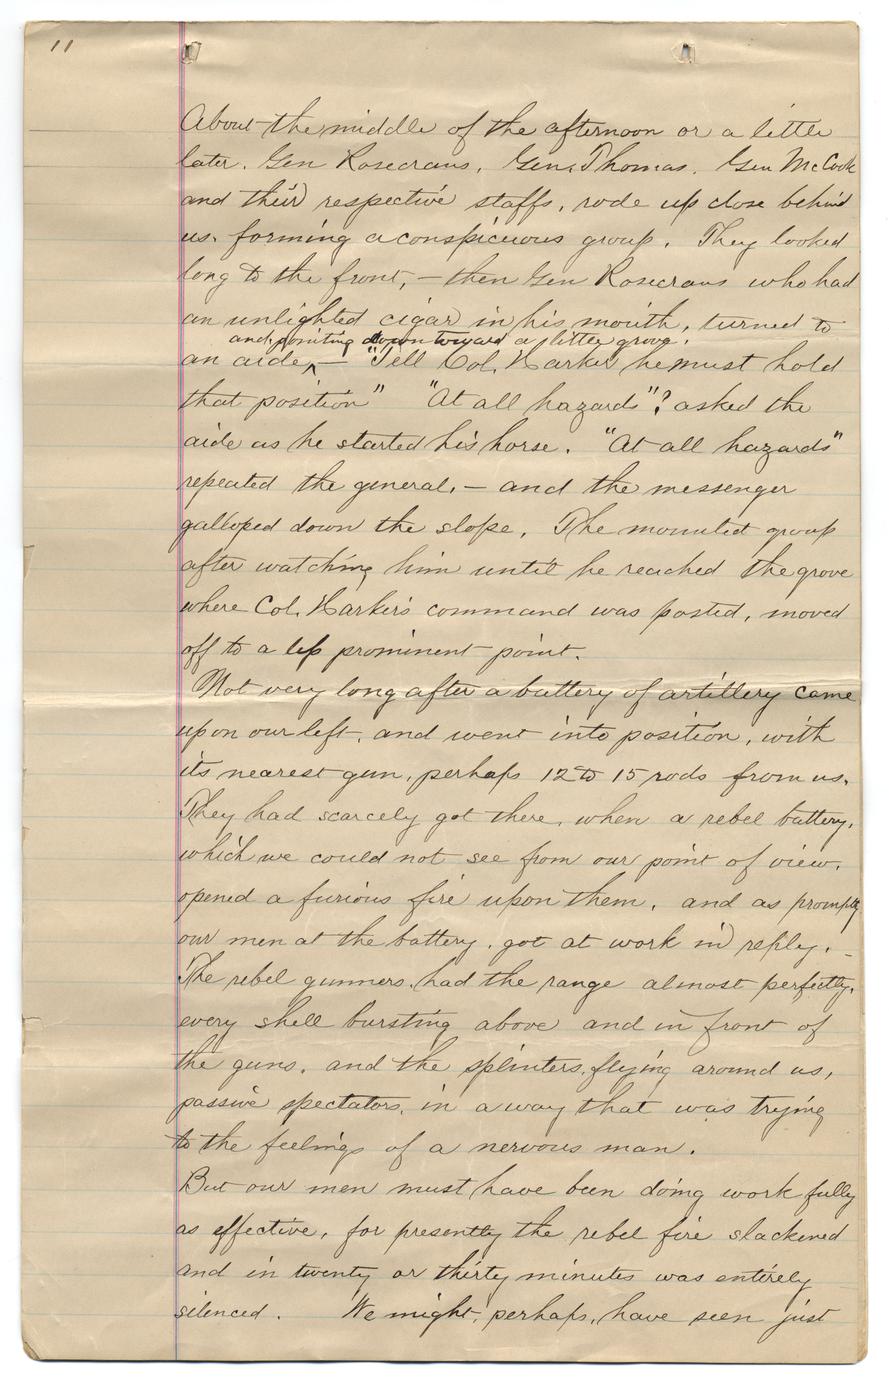 11
About the middle of the afternoon or a little
later. Gen Rosecrans, Gen. Thomas. Gen McCook
and their respective staffs, rode up close behind
us. forming a conspicuous group. They looked
long to the front, — then Gen Rosecrans who had
an unlighted cigar in his mouth, turned to
and pointing down toward a little grove.
an aide, ^ — "Tell Col. Harker he must hold
that position" "At all hazards"? asked the
aide as he started his horse. "At all hazards"
repeated the general, — and the messenger
galloped down the slope. The mounted group
after watching him until he reached the grove
where Col. Harker's command was posted, moved
off to a less prominent point.
Not very long after a battery of artillery came
upon our left, and went into position, with
its nearest gun, perhaps 12 to 15 rods from us.
They had scarcely got there, when a rebel battery,
which we could not see from our point of view,
opened a furious fire upon them, and as promptly
our men at the battery, got at work in reply. -
The rebel gunners had the range almost perfectly,
every shell bursting above and in front of
the guns, and the splinters flying around us,
passive spectators, in a way that was trying
to the feelings of a nervous man.
But our men must have been doing work fully
as effective, for presently the rebel fire slackened
and in twenty or thirty minutes was entirely
silenced. We might, perhaps, have seen just